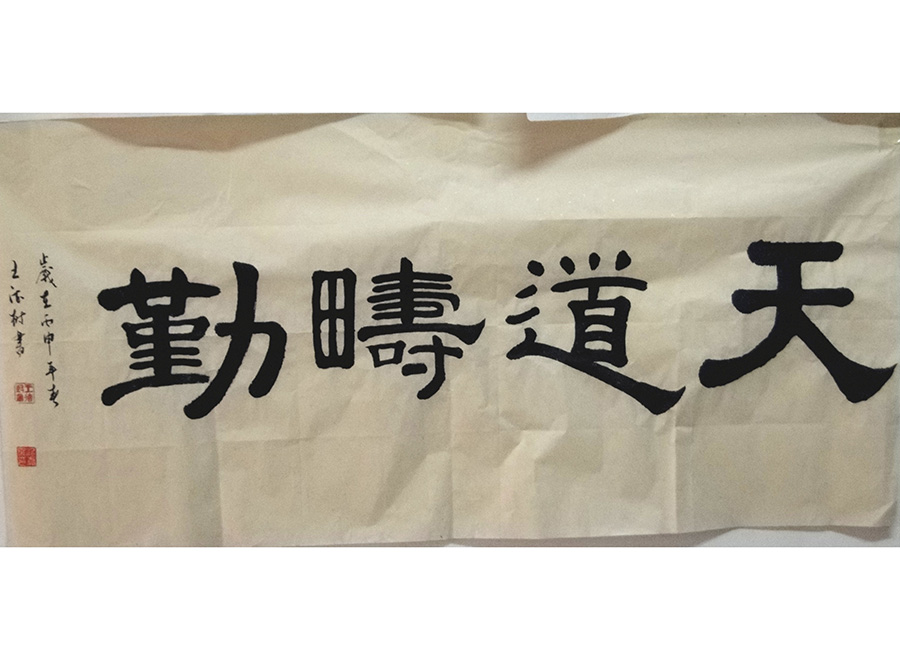 天道疇勤
歲在丙申年春
王树書